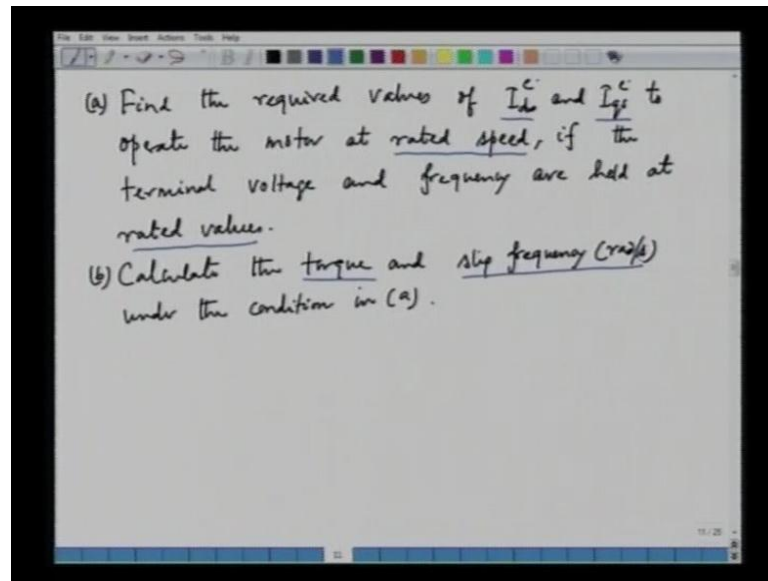 File Edit View Insert Actions Tools Help
(a) Find the required values of I_ds^e and I_qs^e to
operate the motor at rated speed, if the
terminal voltage and frequency are held at
rated values.
(b) Calculate the torque and slip frequency (rad/s)
under the condition in (a).